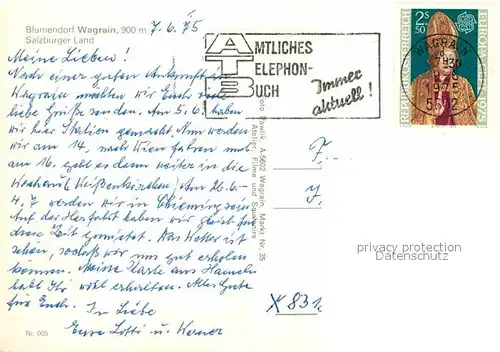 Blumendorf Wagrain, 900 m
Salzburger Land
7.6.75
Meine Lieben!
Nach einer guten Ankunft in
Wagrain möchten wir Euch viele
liebe Grüße senden. Am 5.6. haben
wir hier Station gemacht. Nun werden
wir am 14. nach Wien fahren und
am 16. geht es dann weiter in die
Wachau (Weißenkirchen). Am 26.6.-
4.7 werden wir in Chieming sein.
Auf der Herfahrt haben wir gleich für
diese Zeit gemietet. Das Wetter ist
schön, sodaß wir uns gut erholen
können. Meine Karte aus Hameln
habt Ihr wohl erhalten. Alles Gute
für Euch. In Liebe
Eure Lotti u. Werner
Nr. 005
ATB
AMTLICHES
TELEPHON-
BUCH
Immer
aktuell!
REPUBLIK ÖSTERREICH
2s
50
EUROPA
1975
WAGRAIN
1975
5602
Foto Pawlik, A-5602 Wagrain, Markt Nr. 35
Atelier, Filme und Souvenirs
F...
J.
X 831c
privacy protection
Datenschutz